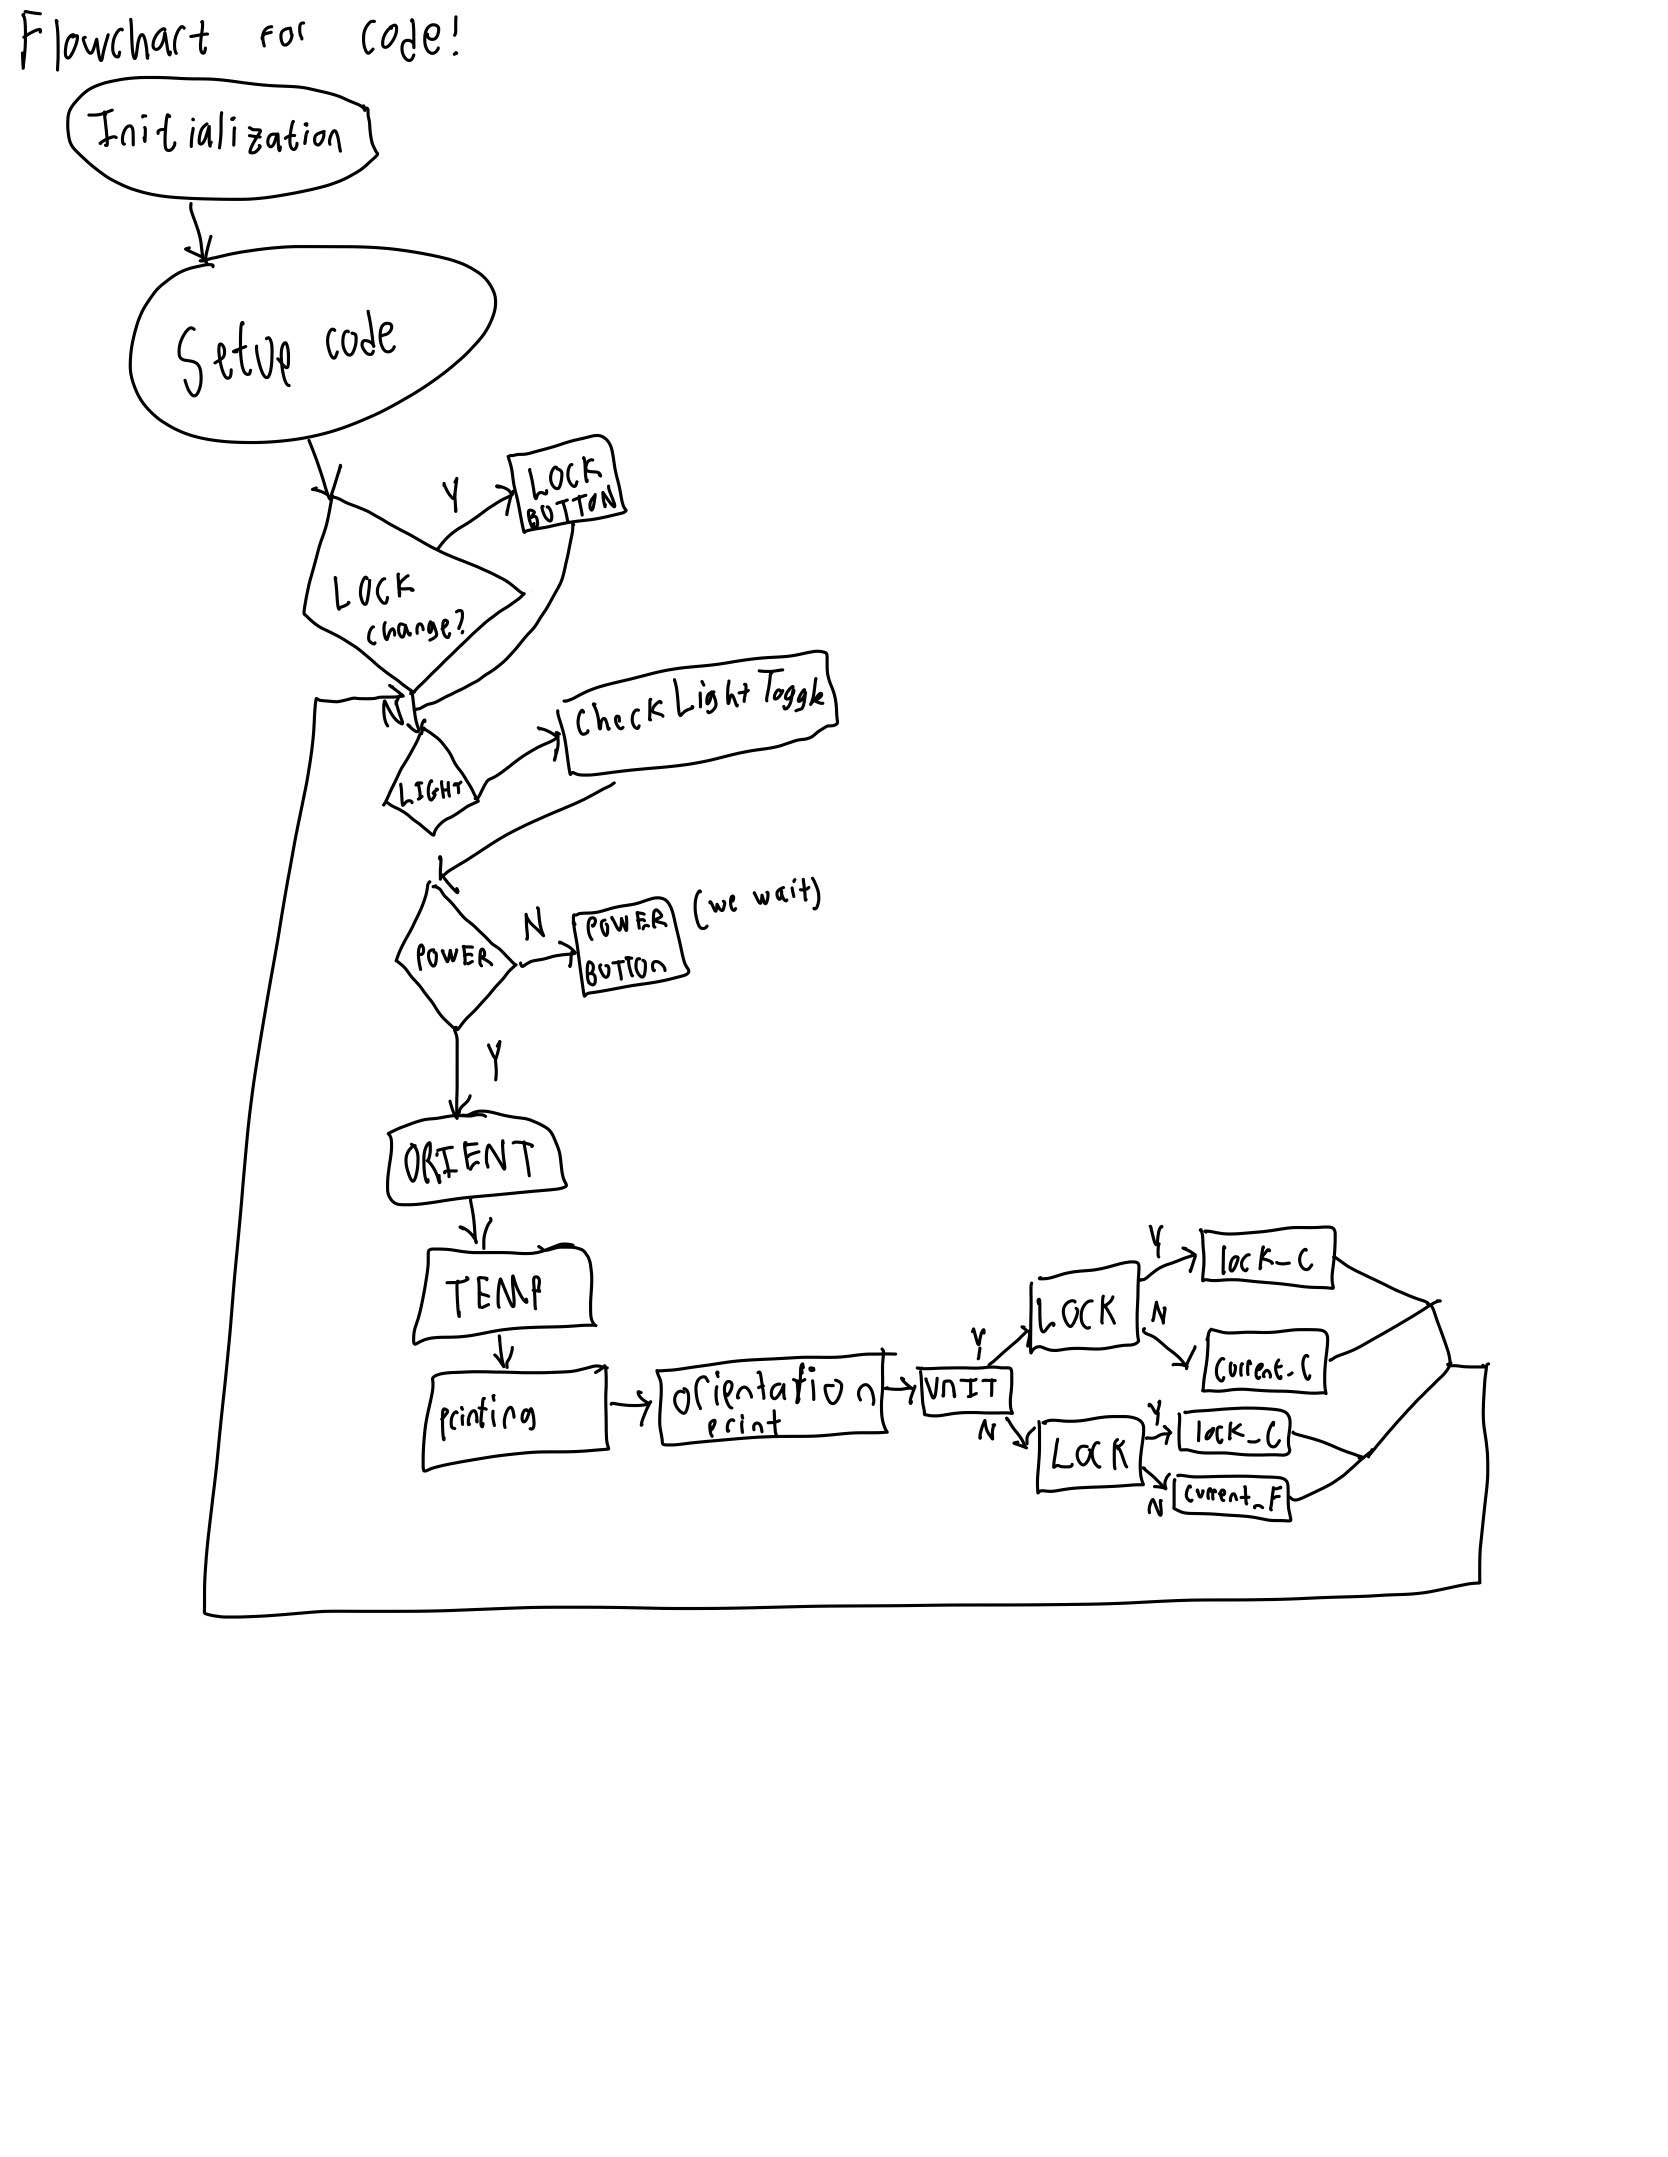 Flowchart for code!
Initialization
Setup code
Y
LOCK
BUTTON
LOCK
change?
N
Check Light Toggle
LIGHT
N
POWER
BUTTON
(we wait)
POWER
Y
ORIENT
TEMP
printing
orientation
print
UNIT
Y
LOCK
Y
lock_C
N
current_C
N
LOCK
Y
lock_C
N
current_F